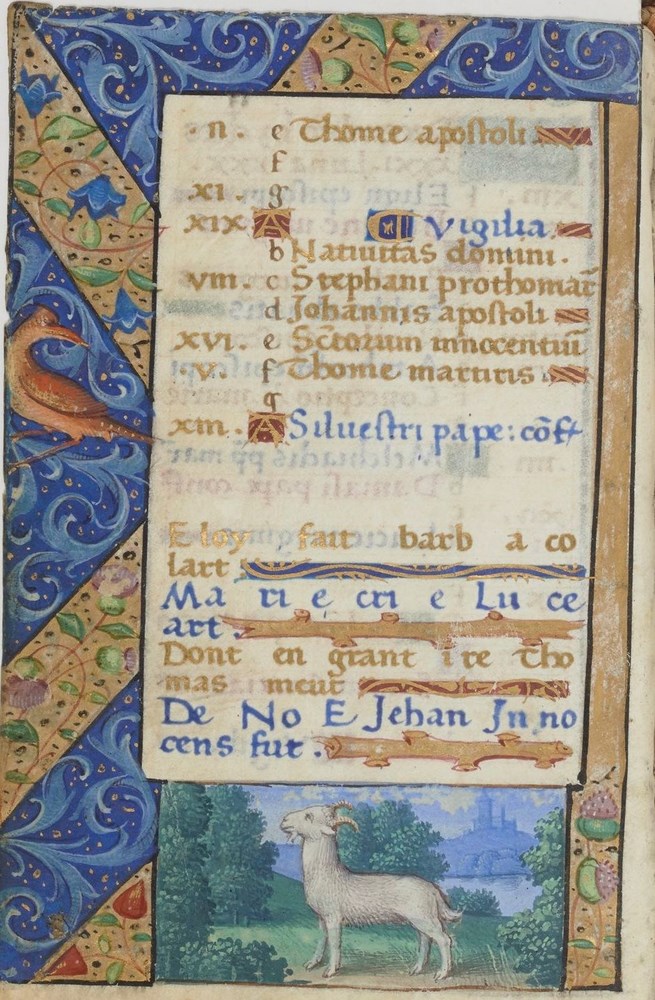 .n. e Thome apostoli
f
xi. g
xix A Vigilia.
b Natiuitas domini.
viii. c Stephani prothomar̄
d Johannis apostoli
xvi. e Sc̄torum innocentiū
.v. f Thome martiris
g
xiii. A Siluestri pape: cōf
Eloy fait barb a co
lart
Ma ri e cri e Lu ce
art.
Dont en grant i re Tho
mas meut
De No E Jehan Inno
cens fut.